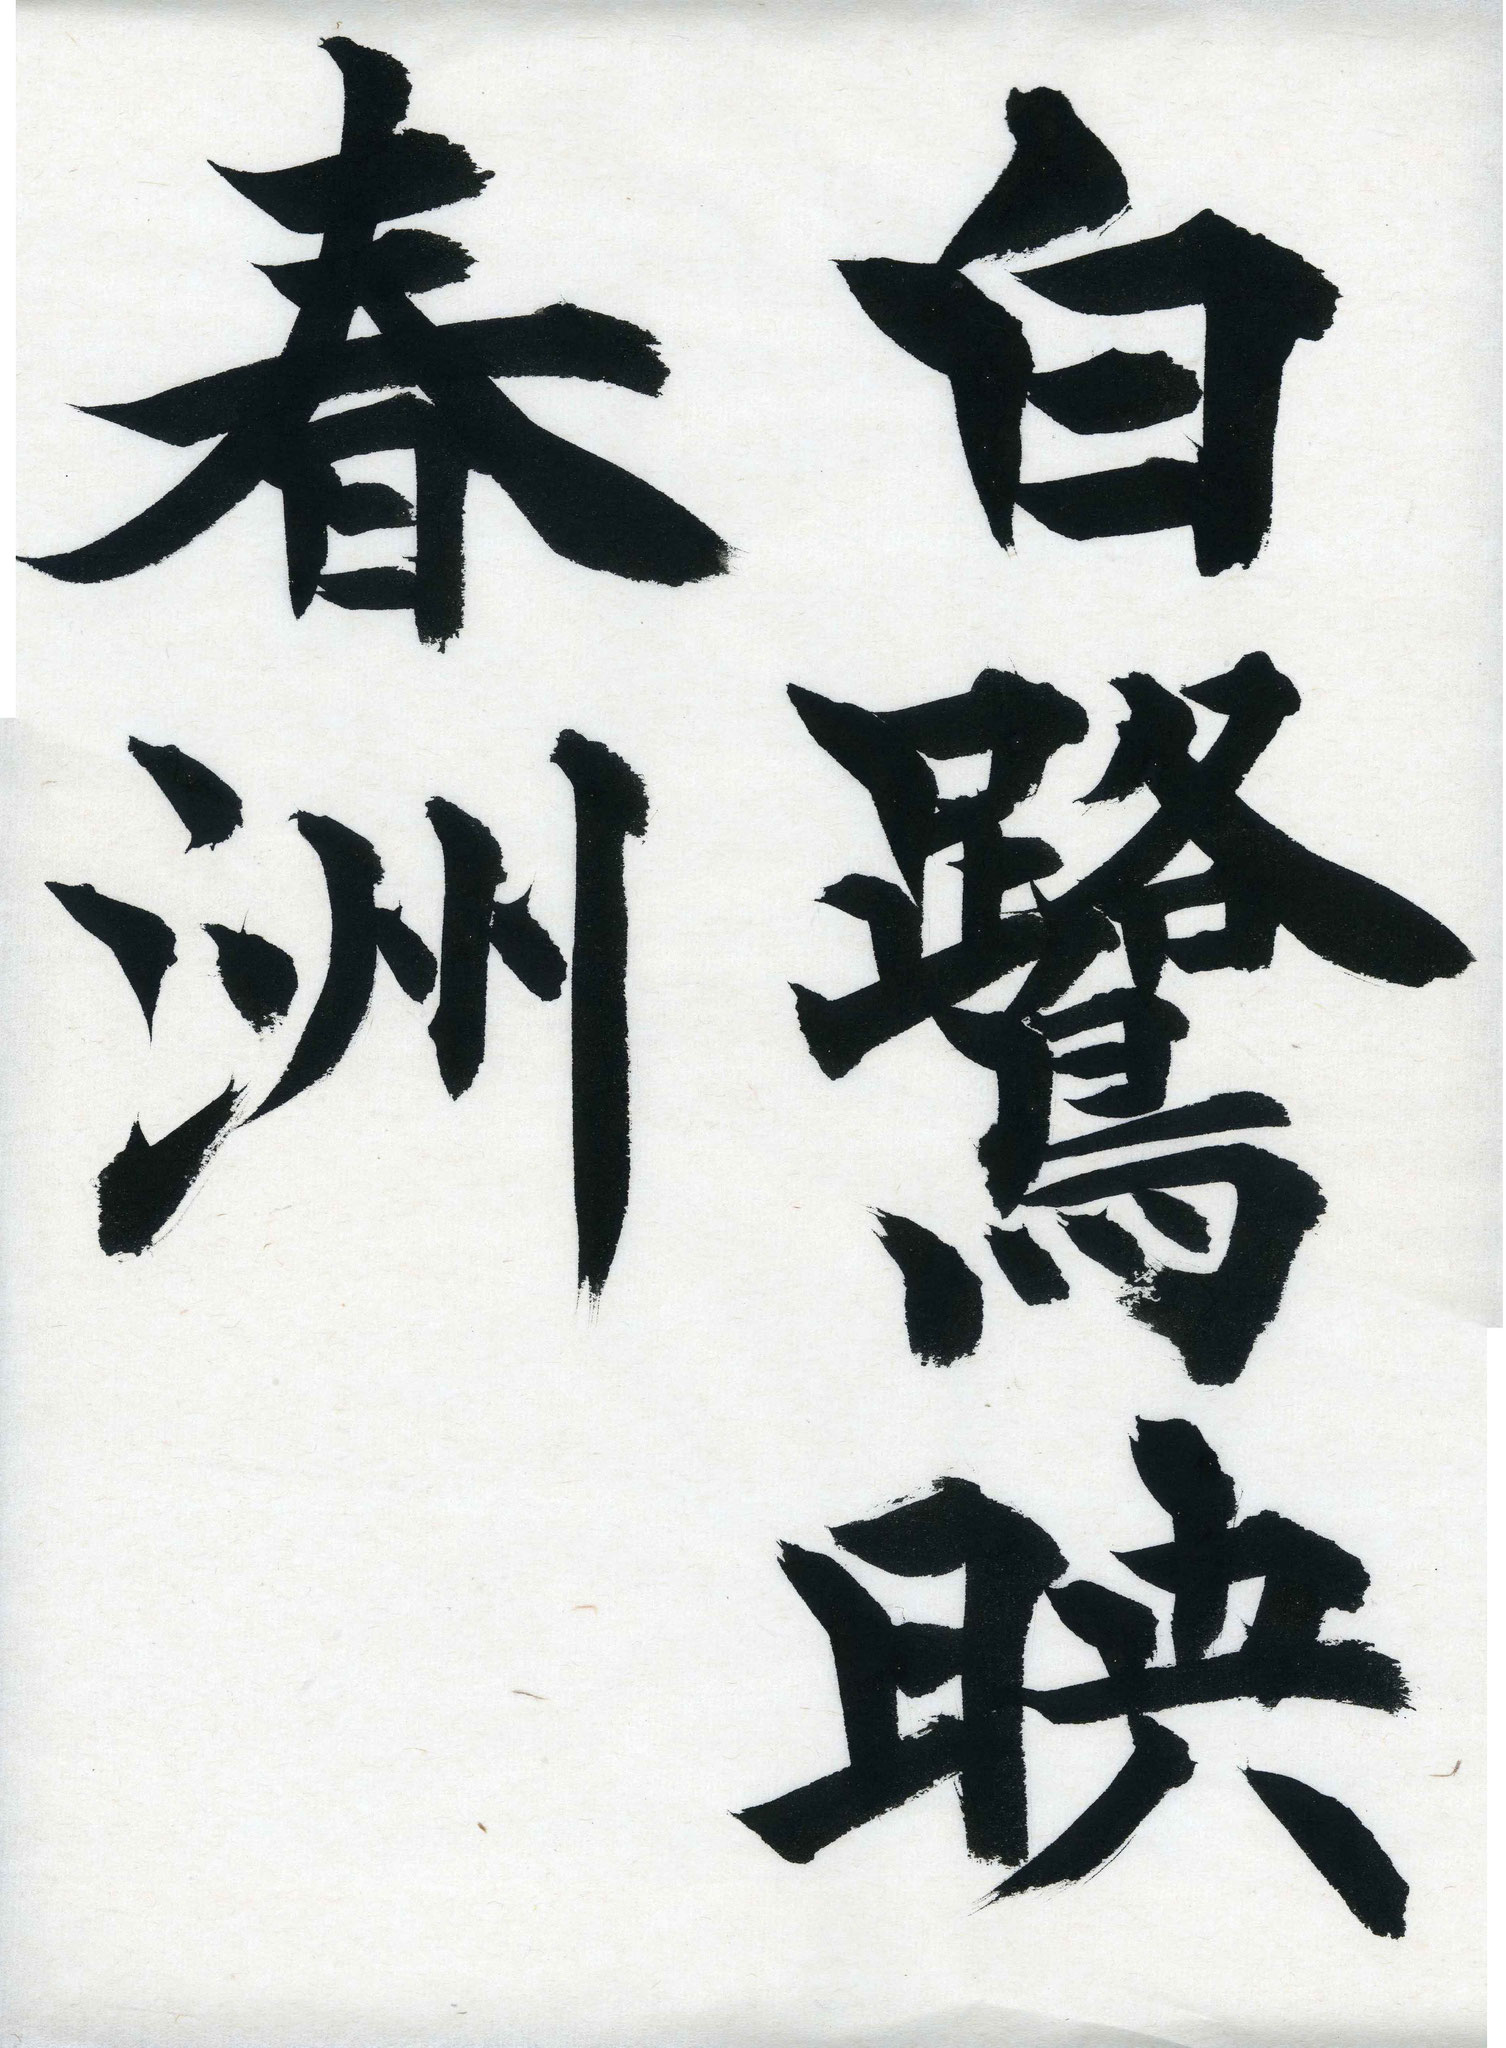 白鷺映
春洲